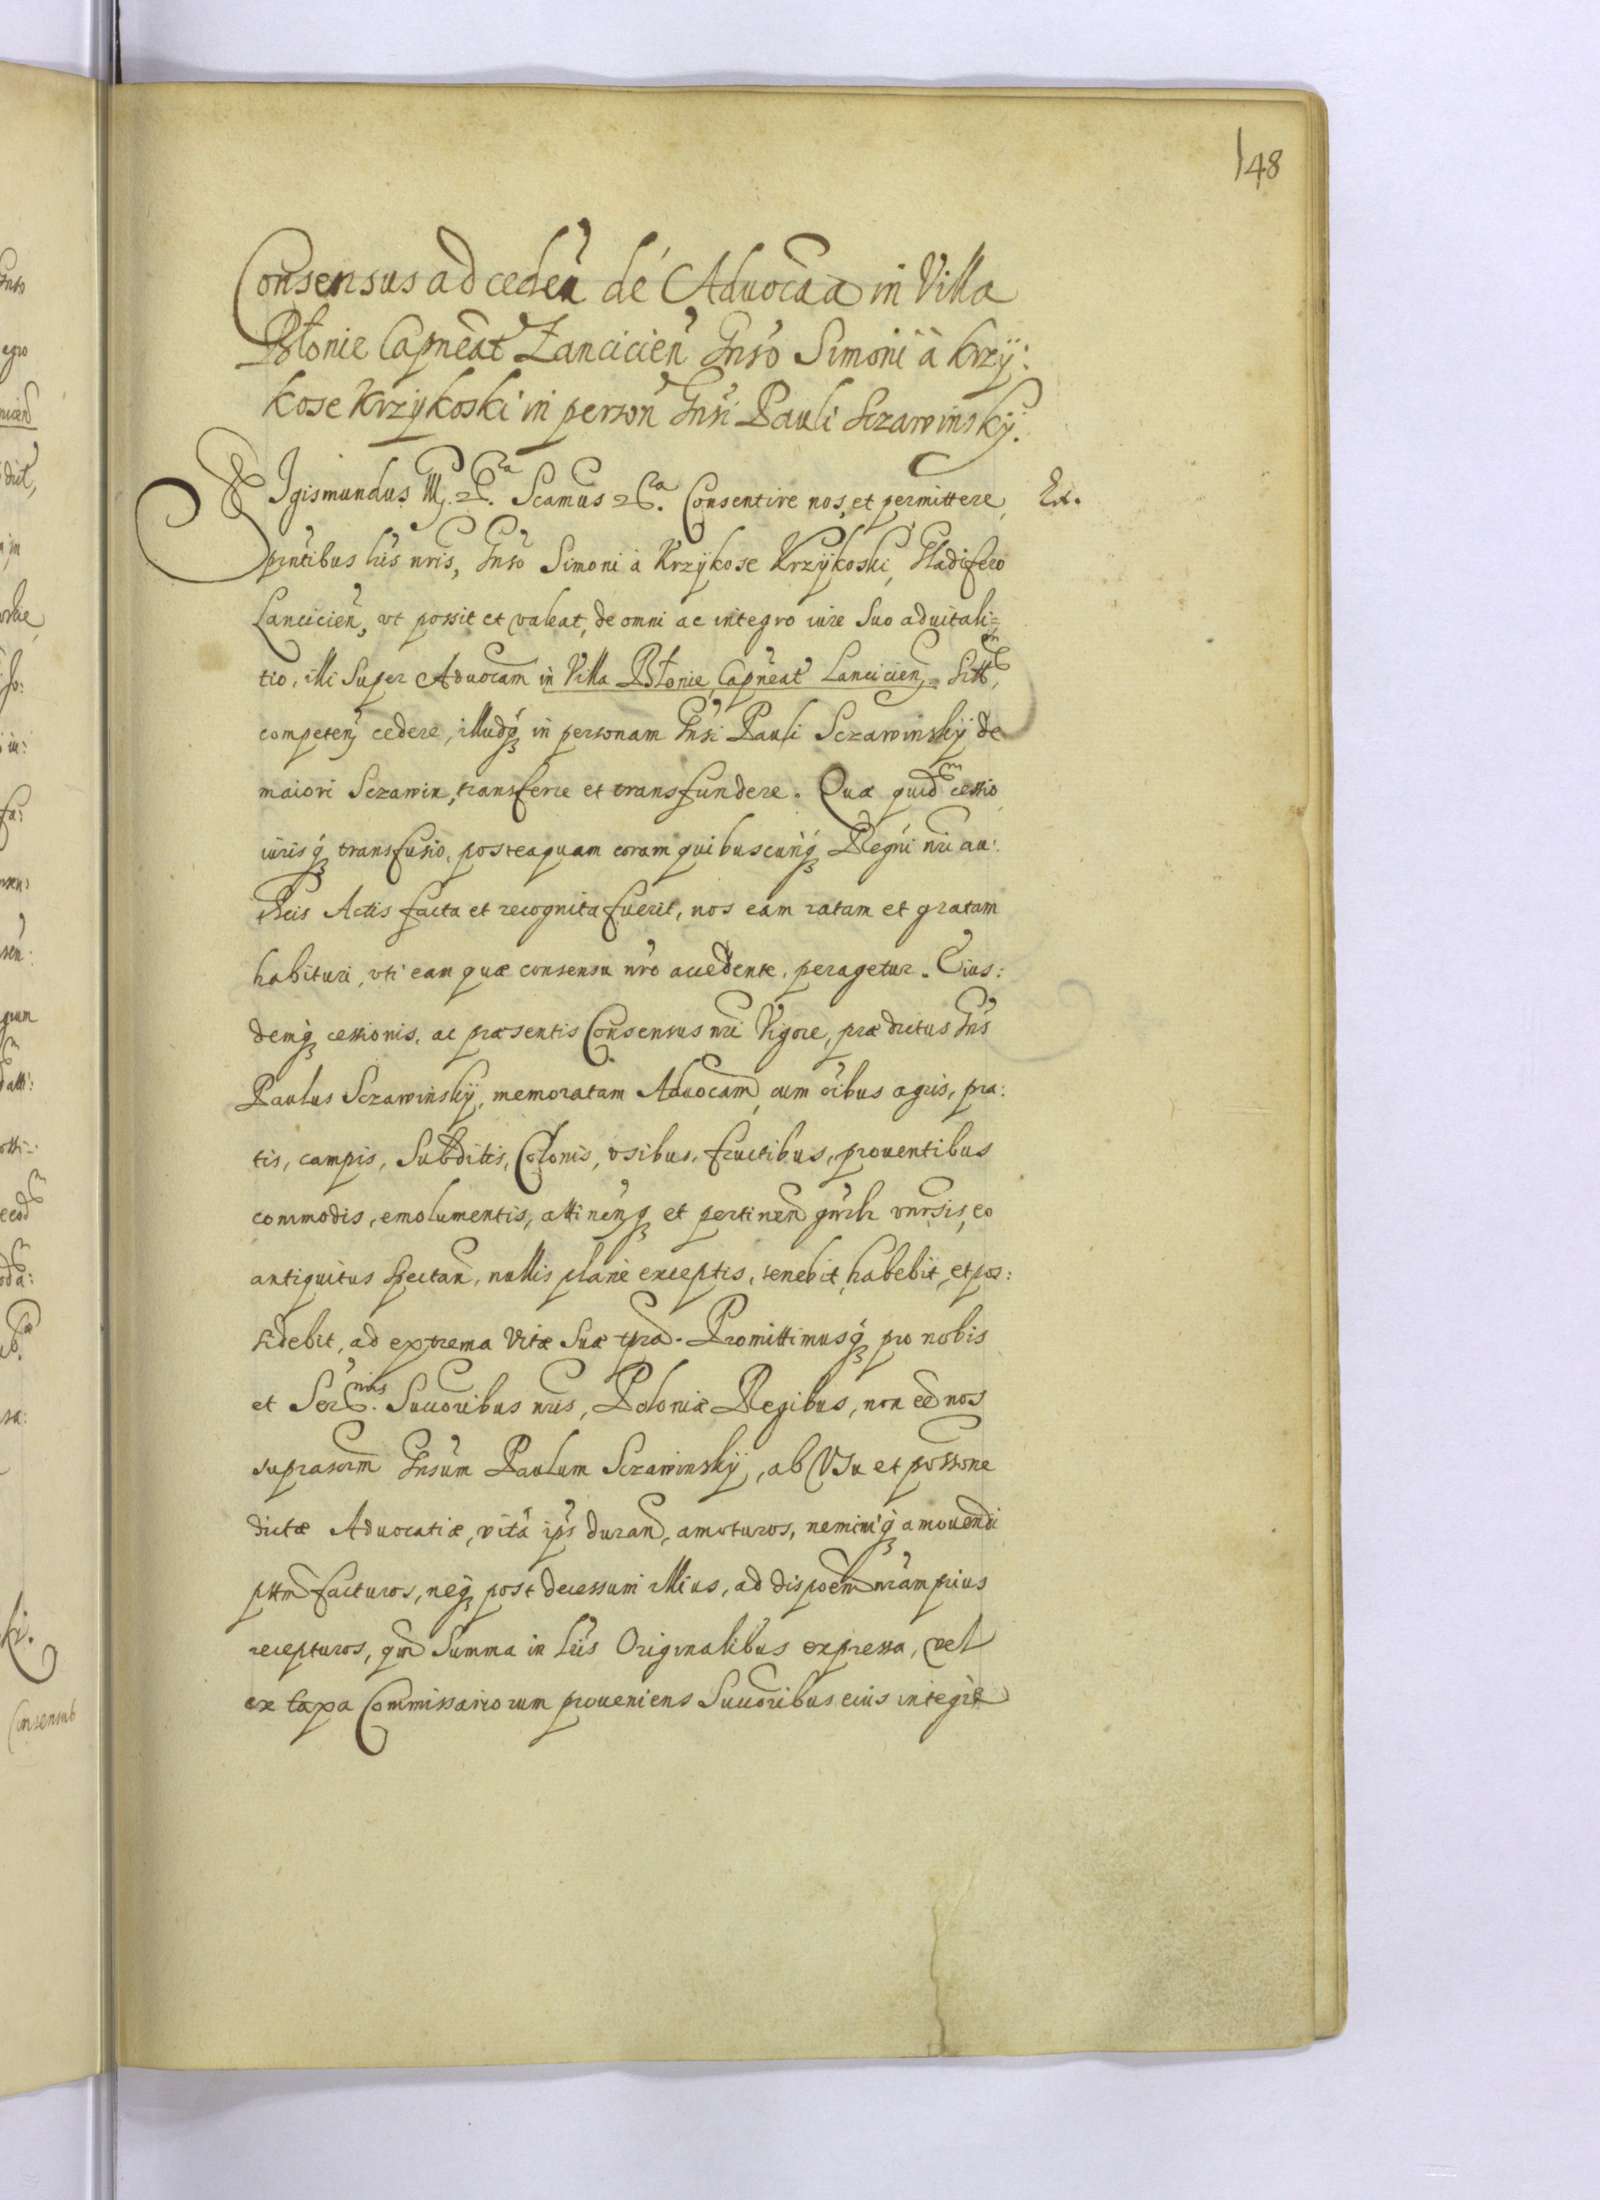 148
Consensus ad ceden̄ de Advocāa in Villa
Błonie Capneat̄ Lancicien̄ Gnso Simoni à Krzÿ:
kose Krzÿkoski in person̄ Gnsi Pauli Sczawinskÿ.
SIgismundus III. Scamus Consentire nos, et permittere, Ex.
pntibus lris nris, Gnso Simoni à Krzÿkose Krzÿkoski, Gladifero
Lancicien̄, vt possit et valeat, de omni ac integro iure suo aduitali=
tio, illi super Aduocam in Villa Błonie, Capneat̄ Lancicien̄,
competen̄ cedere, illudq́ in personam Gnsi Pauli Sczawinskÿ de
maiori Sczawin, transferre et transfundere. Quæ quid cessio
iurisq́ transfusio, posteaquam coram quibuscunq́ Regni nri au:
theis Actis facta et recognita fuerit, nos eam ratam et gratam
habituri, vti eam quæ consensu nro accedente, peragetur. Eius:
demq́ cessionis, ac præsentis Consensus nri Vigore, prædictus Gns
Paulus Sczawinskÿ, memoratam Aduocam, cum oibus agris, pra:
tis, campis, Subditis, Colonis, vsibus, fructibus, prouentibus
commodis, emolumentis, attinenq́ et pertinen̄ gnrlr vnrsis, eo
antiquitus spectan̄, nullis planè exceptis, tenebit, habebit, et pos:
sidebit, ad extrema Vitæ suæ tpra. Promittimusq́ pro nobis
et Sermis. Succoribus nris, Poloniæ Regibus, non eē nos
suprascrm Gnsum Paulum Sczawinskÿ, ab Vsu et possone
dictæ Aduocatiæ, vitâ ips duran̄, amoturos, neminiq́ amouendi
pttm facturos, neq́ post decessum illius, ad dispoem nram prius
recepturos, qm Summa in Lris Originalibus expressa, vel
ex taxa Commissariorum proueniens Succoribus eius integrè
Consensus